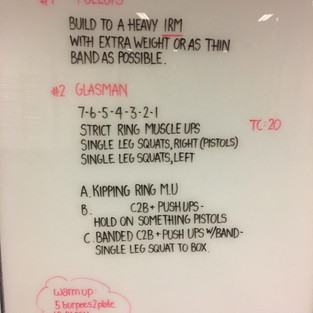 #1 PULLUPS
BUILD TO A HEAVY 1RM
WITH EXTRA WEIGHT OR AS THIN
BAND AS POSSIBLE.
#2 GLASMAN
7-6-5-4-3-2-1
STRICT RING MUSCLE UPS
TC:20
SINGLE LEG SQUATS, RIGHT (PISTOLS)
SINGLE LEG SQUATS, LEFT
A. KIPPING RING M.U
B. C2B + PUSH UPS -
HOLD ON SOMETHING PISTOLS
C. BANDED C2B + PUSH UPS W/BAND -
SINGLE LEG SQUAT TO BOX.
warm up
5 burpees 2 plate